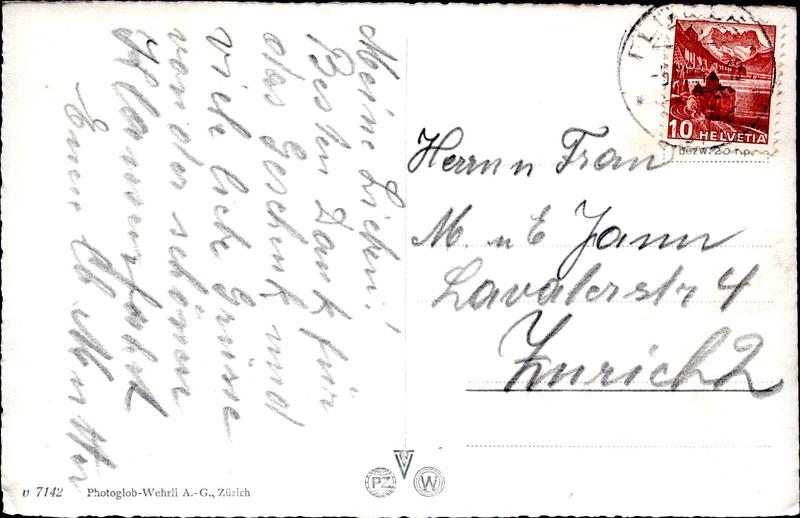 Meine Lieben!
Besten Dank für
das Geschenk und
viele liebe Grüsse
von der schönen
Euer Mutter
Herrn u Frau
M. u E Jann
Lavaterstr 4
Zürich 2
10 HELVETIA
bezw. 20 rp.
v 7142 Photoglob-Wehrli A.-G., Zürich
PZ
W